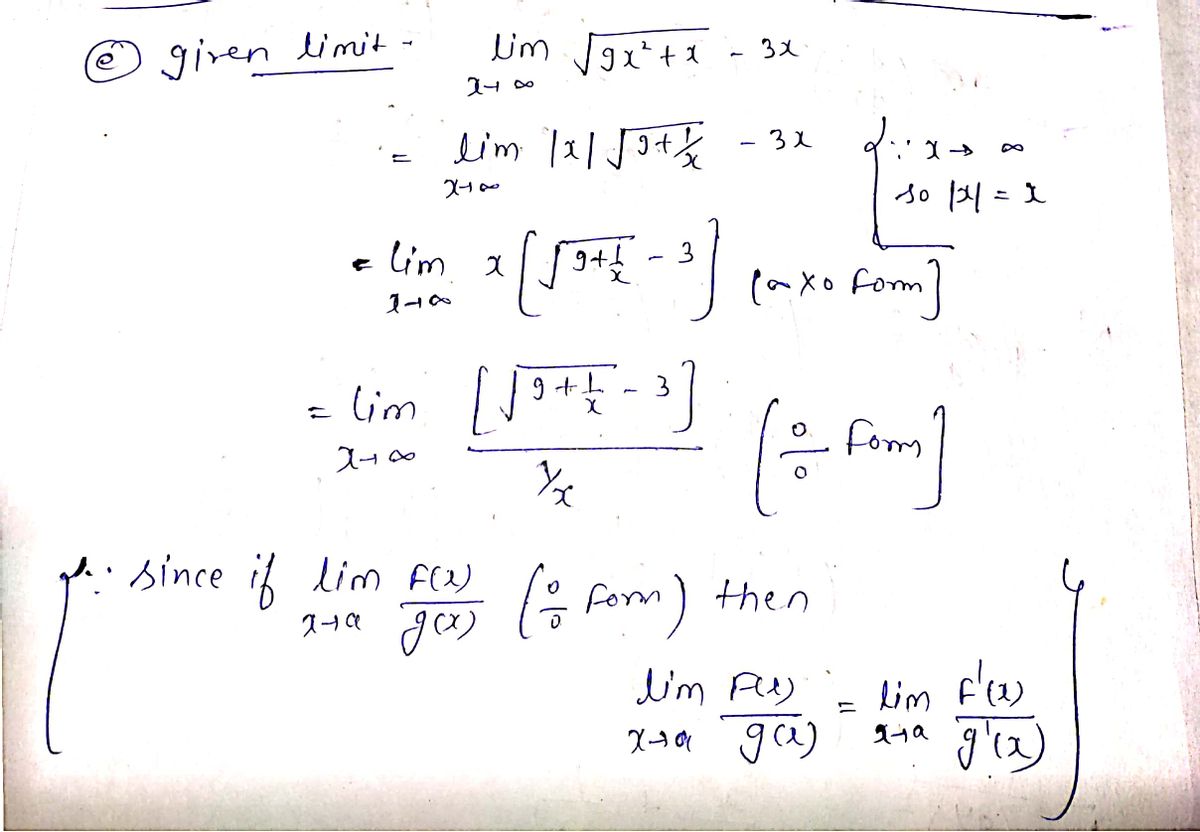 (e) given limit - lim x→∞ √9x²+x - 3x
= lim x→∞ |x| √9+1/x - 3x {∵ x → ∞
so |x| = x
= lim x→∞ x [√9+1/x - 3] (∞ x 0 form]
= lim x→∞ [√9+1/x - 3] / 1/x [0/0 form]
{∵ since if lim x→a F(x)/g(x) (0/0 form) then
lim x→a F(x)/g(x) = lim x→a F'(x)/g'(x) }